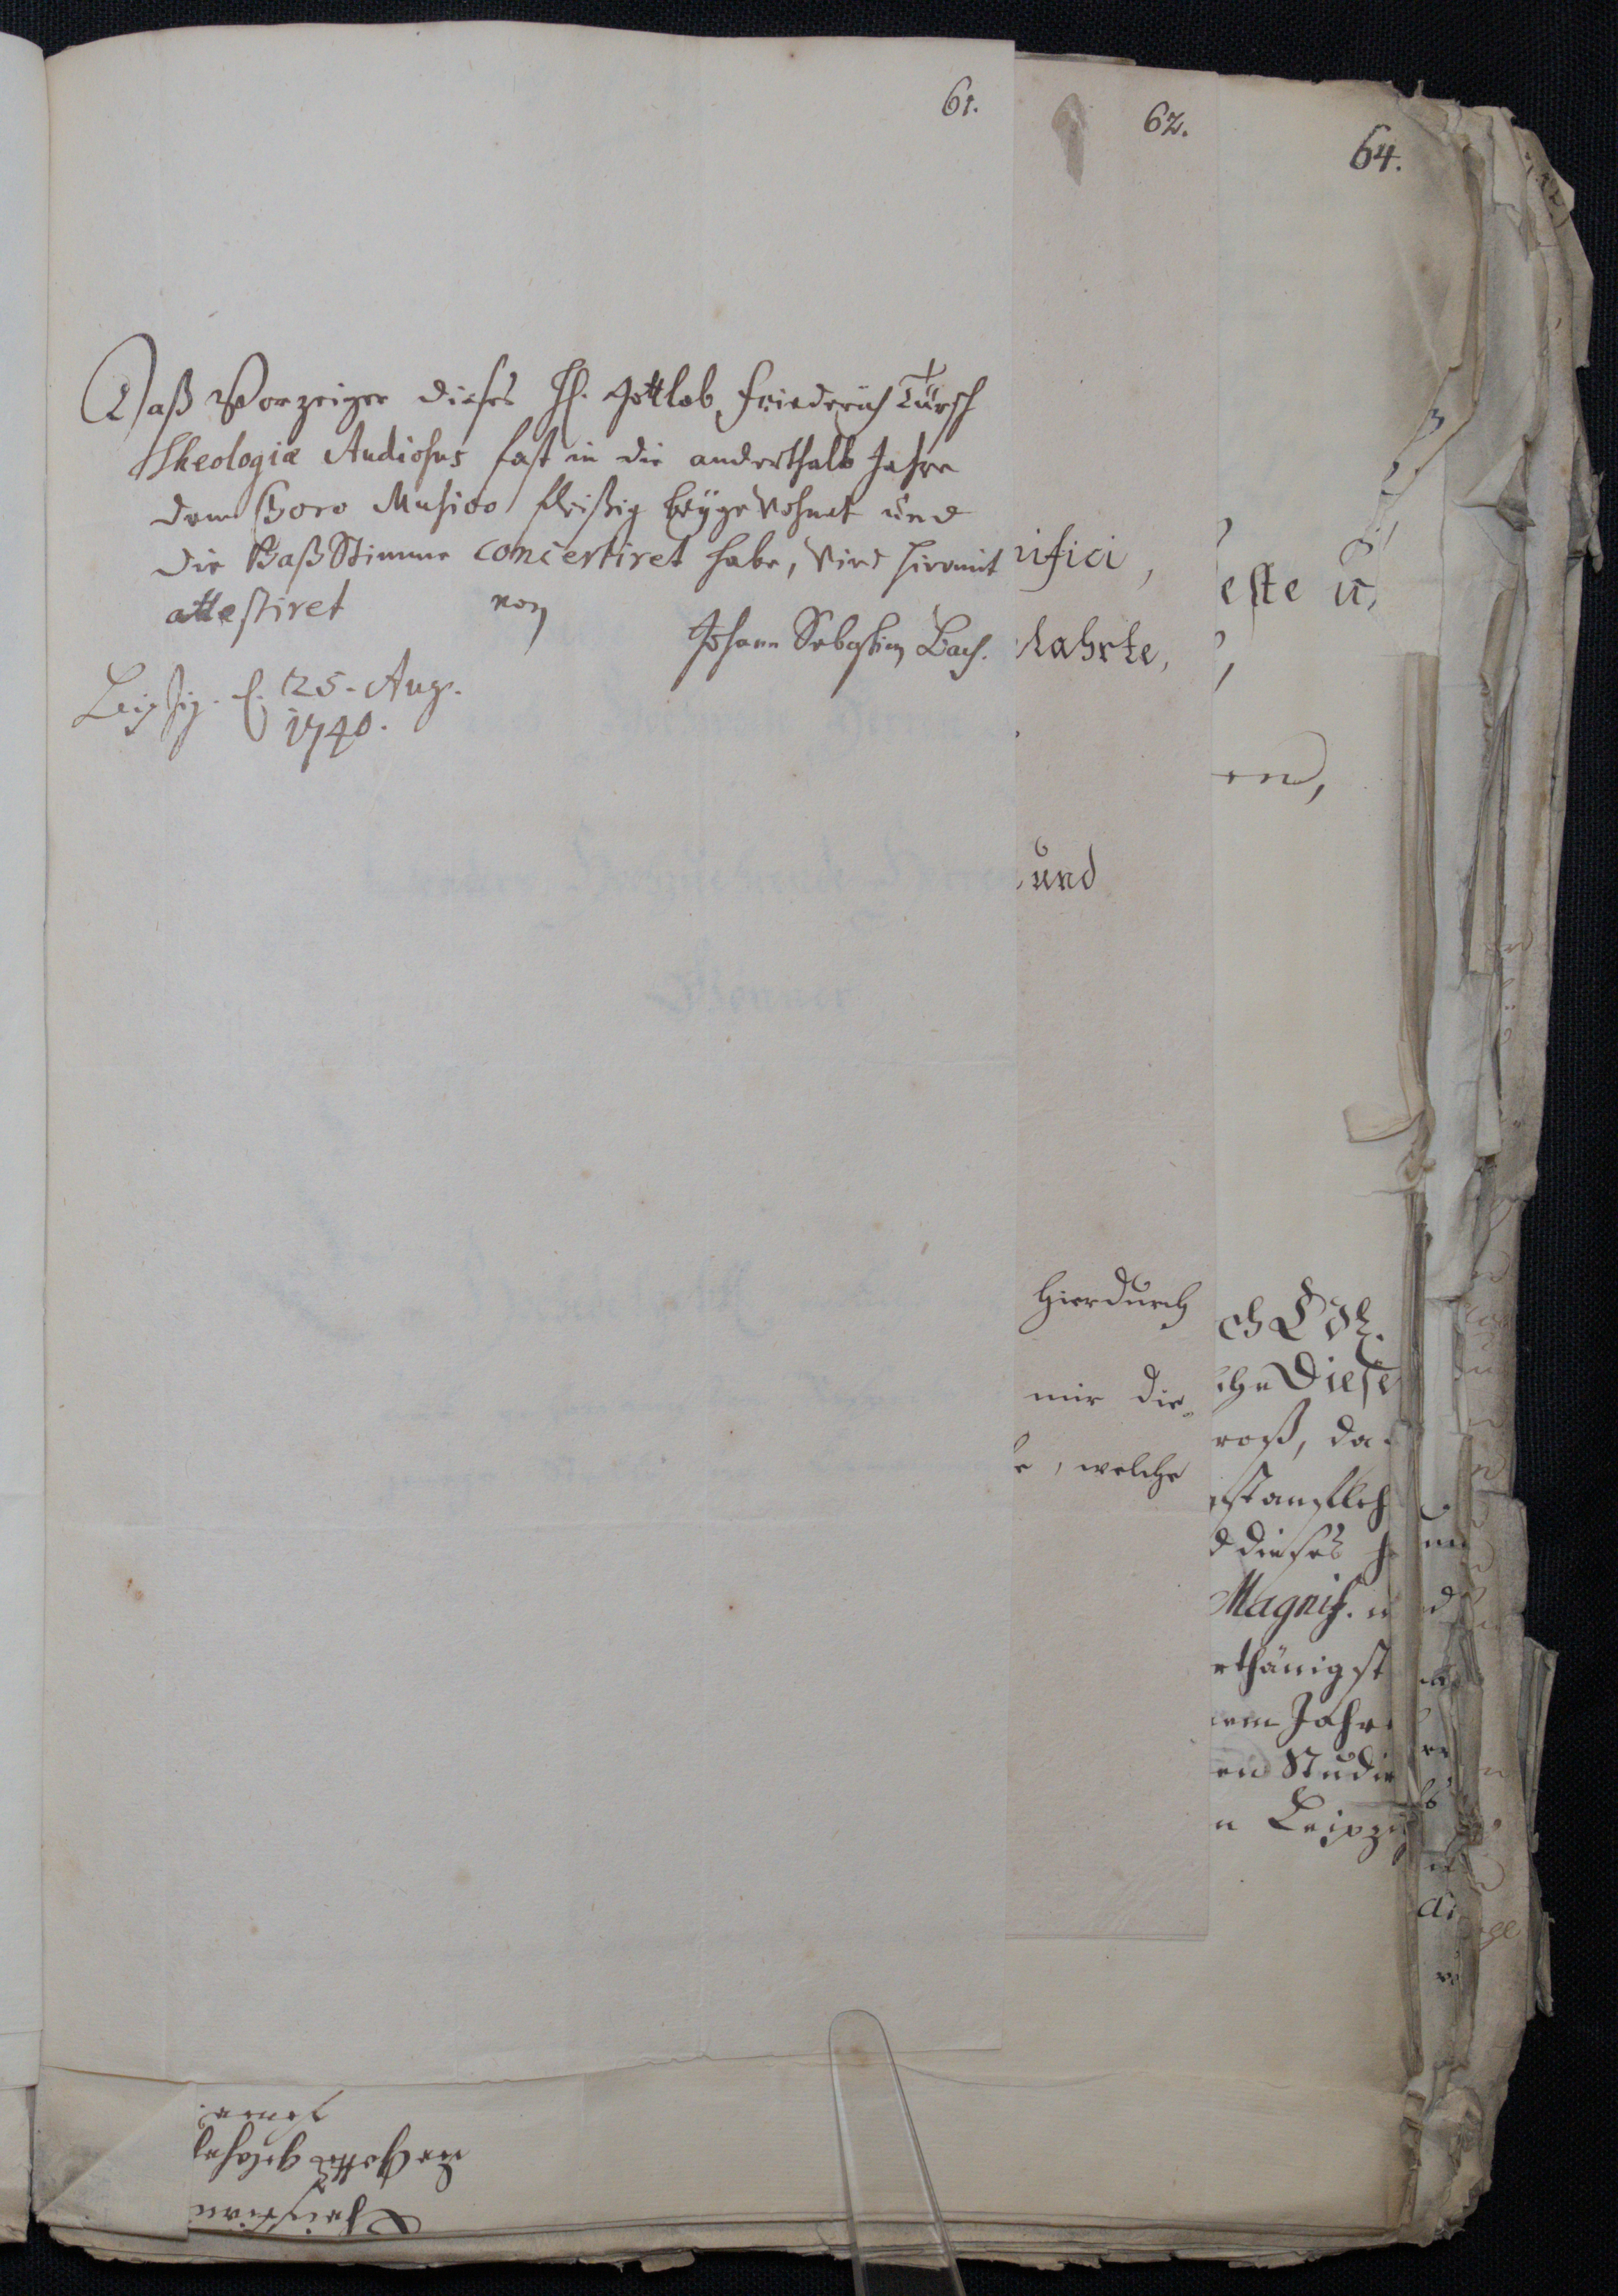 61.
Daß Vorzeiger dieses H. Gottlob Friederich Türsch
Theologiæ Studiosus fast in die anderthalb Jahre
dem Choro Musico fleißig beygewohnet und
die Baß Stimme concertiret habe, wird hiermit
attestiret von
Johann Sebastian Bach.
Leipzig. d. 25. Aug.
1740.
62.
und
hierdurch
mir die
welche
64.
este u,
en,
Diese
roß, da
dieses
Magnif. u
rthänigst
em Jahre
en Studie
n Leipzig
Christian
der Gottes gelahrt